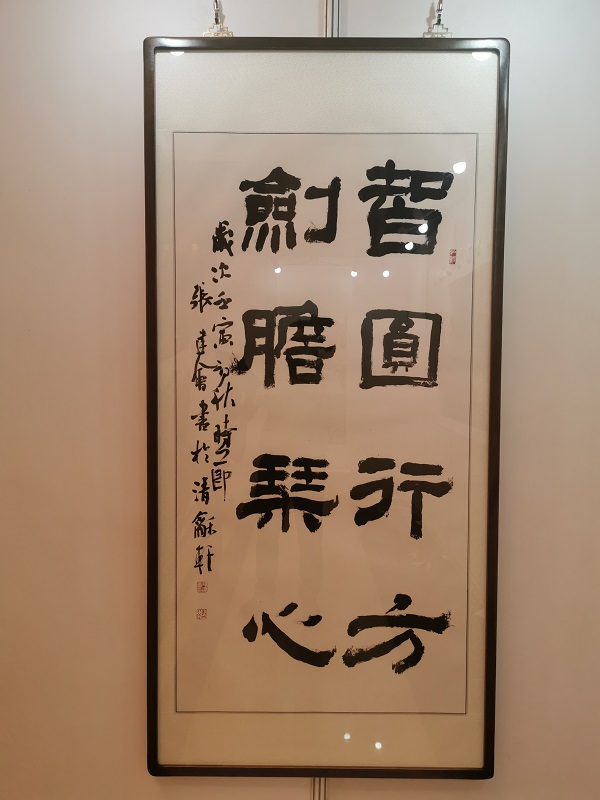 智圓行方
劍膽琹心
歲次壬寅初秋時節
張建會書於清龢軒